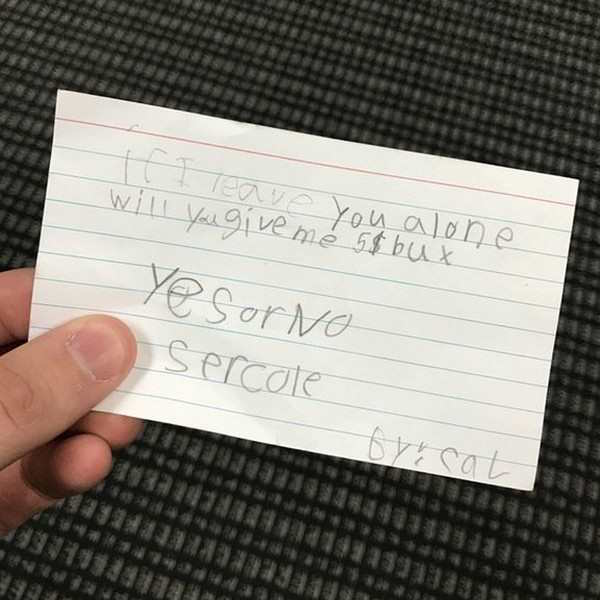 If I leave you alone
will you give me 5$ bux
Yes or No
sercole
by: cal